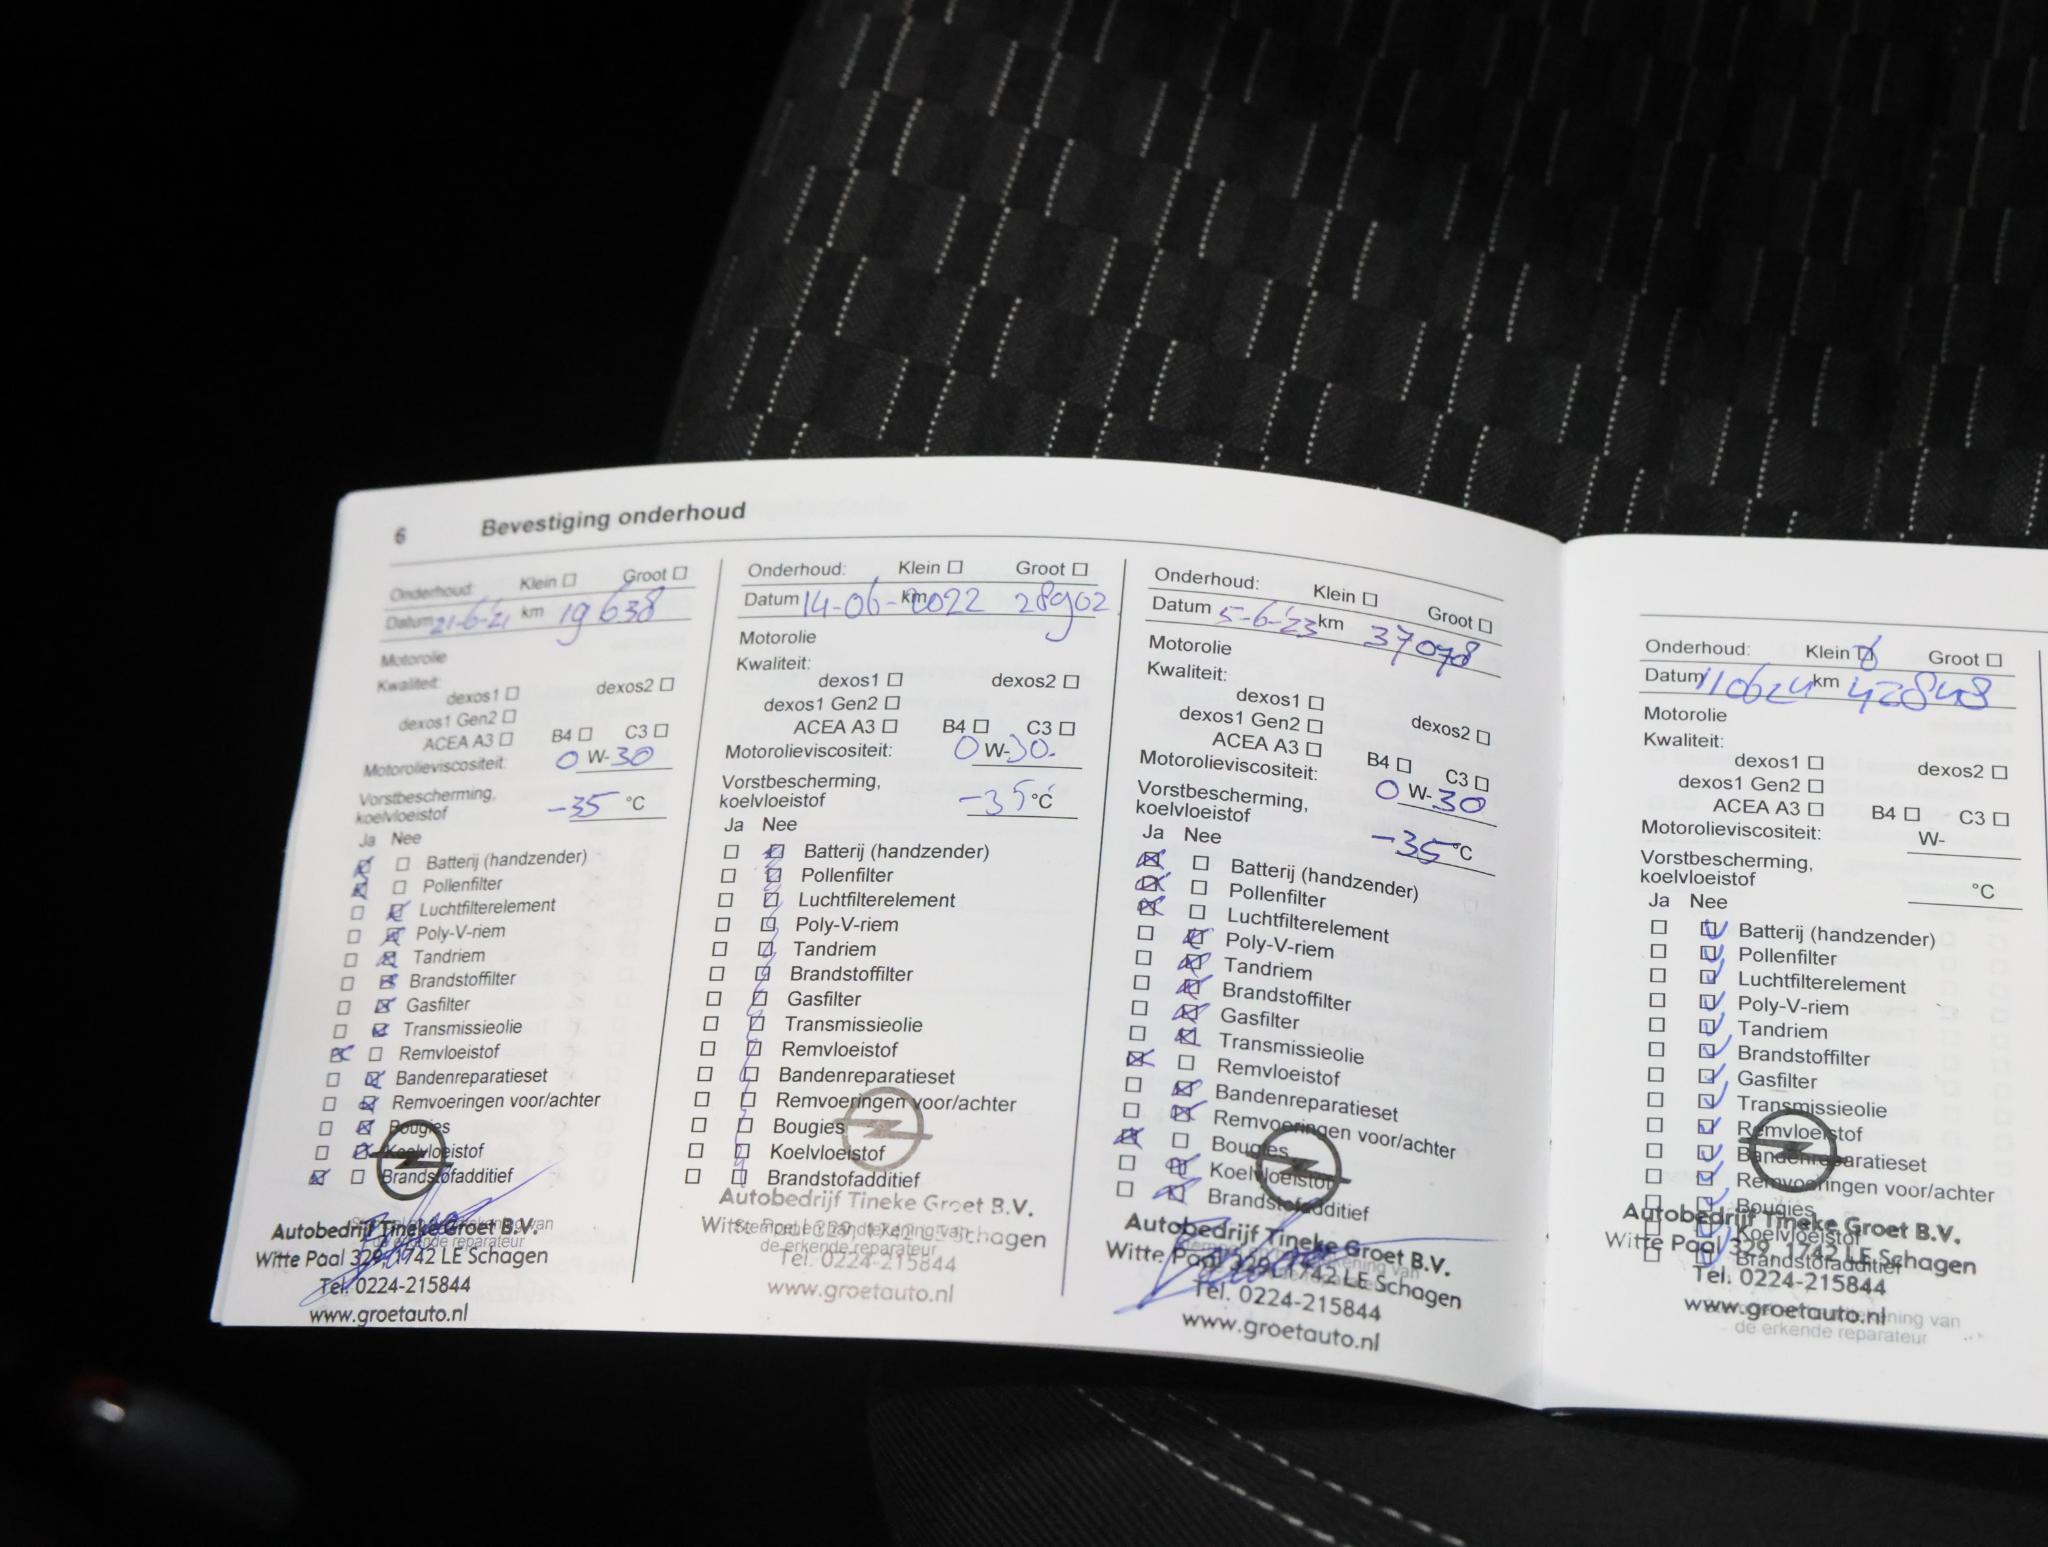 6 Bevestiging onderhoud
Onderhoud: Klein Groot
Datum 21-6-'21 km 19638
Motorolie
Kwaliteit:
dexos1 dexos2
dexos1 Gen2
ACEA A3 B4 C3
Motorolieviscositeit: 0 W-30
Vorstbescherming,
koelvloeistof -35 °C
Ja Nee
Batterij (handzender)
Pollenfilter
Luchtfilterelement
Poly-V-riem
Tandriem
Brandstoffilter
Gasfilter
Transmissieolie
Remvloeistof
Bandenreparatieset
Remvoeringen voor/achter
Bougies
Koelvloeistof
Brandstofadditief
Autobedrijf Tineke Groet B.V.
Witte Paal 329, 1742 LE Schagen
Tel. 0224-215844
www.groetauto.nl
Onderhoud: Klein Groot
Datum 14-06-2022 km 28902
Motorolie
Kwaliteit:
dexos1 dexos2
dexos1 Gen2
ACEA A3 B4 C3
Motorolieviscositeit: 0 W-30.
Vorstbescherming,
koelvloeistof -35 °C
Ja Nee
Batterij (handzender)
Pollenfilter
Luchtfilterelement
Poly-V-riem
Tandriem
Brandstoffilter
Gasfilter
Transmissieolie
Remvloeistof
Bandenreparatieset
Remvoeringen voor/achter
Bougies
Koelvloeistof
Brandstofadditief
Autobedrijf Tineke Groet B.V.
Witte Paal 329, 1742 LE Schagen
Stempel en handtekening van
de erkende reparateur
Tel. 0224-215844
www.groetauto.nl
Onderhoud: Klein Groot
Datum 5-6-'23 km 37078
Motorolie
Kwaliteit:
dexos1 dexos2
dexos1 Gen2
ACEA A3 B4 C3
Motorolieviscositeit: 0 W-30
Vorstbescherming,
koelvloeistof -35 °C
Ja Nee
Batterij (handzender)
Pollenfilter
Luchtfilterelement
Poly-V-riem
Tandriem
Brandstoffilter
Gasfilter
Transmissieolie
Remvloeistof
Bandenreparatieset
Remvoeringen voor/achter
Bougies
Koelvloeistof
Brandstofadditief
Autobedrijf Tineke Groet B.V.
Witte Paal 329, 1742 LE Schagen
Tel. 0224-215844
www.groetauto.nl
Onderhoud: Klein Groot
Datum 110624 km 42848
Motorolie
Kwaliteit:
dexos1 dexos2
dexos1 Gen2
ACEA A3 B4 C3
Motorolieviscositeit: W-
Vorstbescherming,
koelvloeistof °C
Ja Nee
Batterij (handzender)
Pollenfilter
Luchtfilterelement
Poly-V-riem
Tandriem
Brandstoffilter
Gasfilter
Transmissieolie
Remvloeistof
Bandenreparatieset
Remvoeringen voor/achter
Bougies
Autobedrijf Tineke Groet B.V.
Koelvloeistof
Witte Paal 329, 1742 LE Schagen
Brandstofadditief
Tel. 0224-215844
www.groetauto.nl
de erkende reparateur